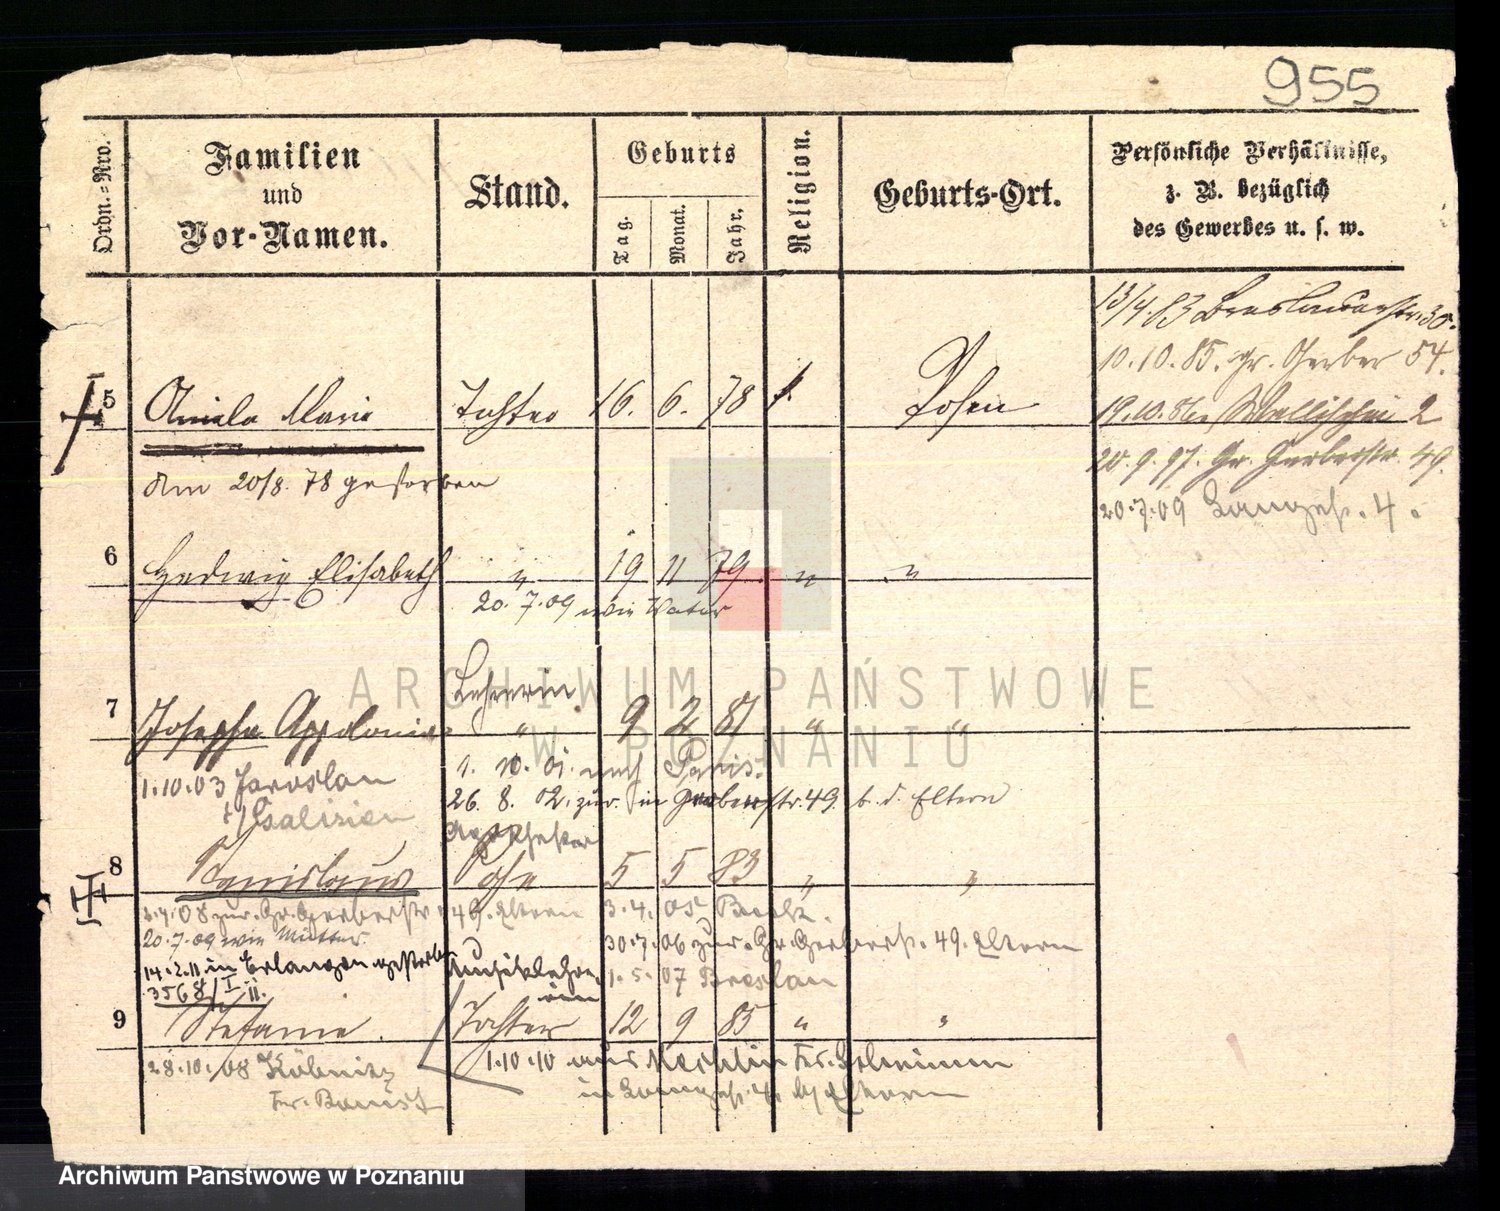 955
Ordn.=Nro.
Familien
und
Vor-Namen.
Stand.
Geburts
Tag.
Monat.
Jahr.
Religion.
Geburts-Ort.
Persönliche Verhältnisse,
z. B. bezüglich
des Gewerbes u. s. w.
13/4.83 Breslauerstr. 30.
10.10.85. gr. Gerber 54.
19.10.86 Wallischei 2
20.9.97. Gr. Gerberstr. 49.
20.7.09 Langestr. 4.
5 Aniela Marie Tochter 16. 6. 78 k. Posen
Am 20/8. 78 gestorben
6 Hedwig Elisabeth " 19 11 79 " "
20.7.09 wie Vater
Lehrerin
7 Josepha Appolonia " 9 2 81 " "
1.10.03 Jaroslau
Galizien
1. 10. 01. nach Paris.
26. 8. 02. zur. in Gerberstr. 49. b. d. Eltern
Apotheker
8 Stanislaus Sohn 5 5 83 " "
2.4.08 zur. Gr. Gerberstr. 49. Eltern
20.7.09 wie Mutter
14.2.11 in Erlangen gestorben
3568/I 11.
3.4.05
30.7.06 zur. Gr. Gerberstr. 49. Eltern
1.5.07 Breslau
Musiklehre-
rin
9 Stefanie. Tochter 12 9 85 " "
28.10.08
1.10.10 aus
in Langestr. 4 Eltern
ARCHIWUM PAŃSTWOWE
W POZNANIU
Archiwum Państwowe w Poznaniu